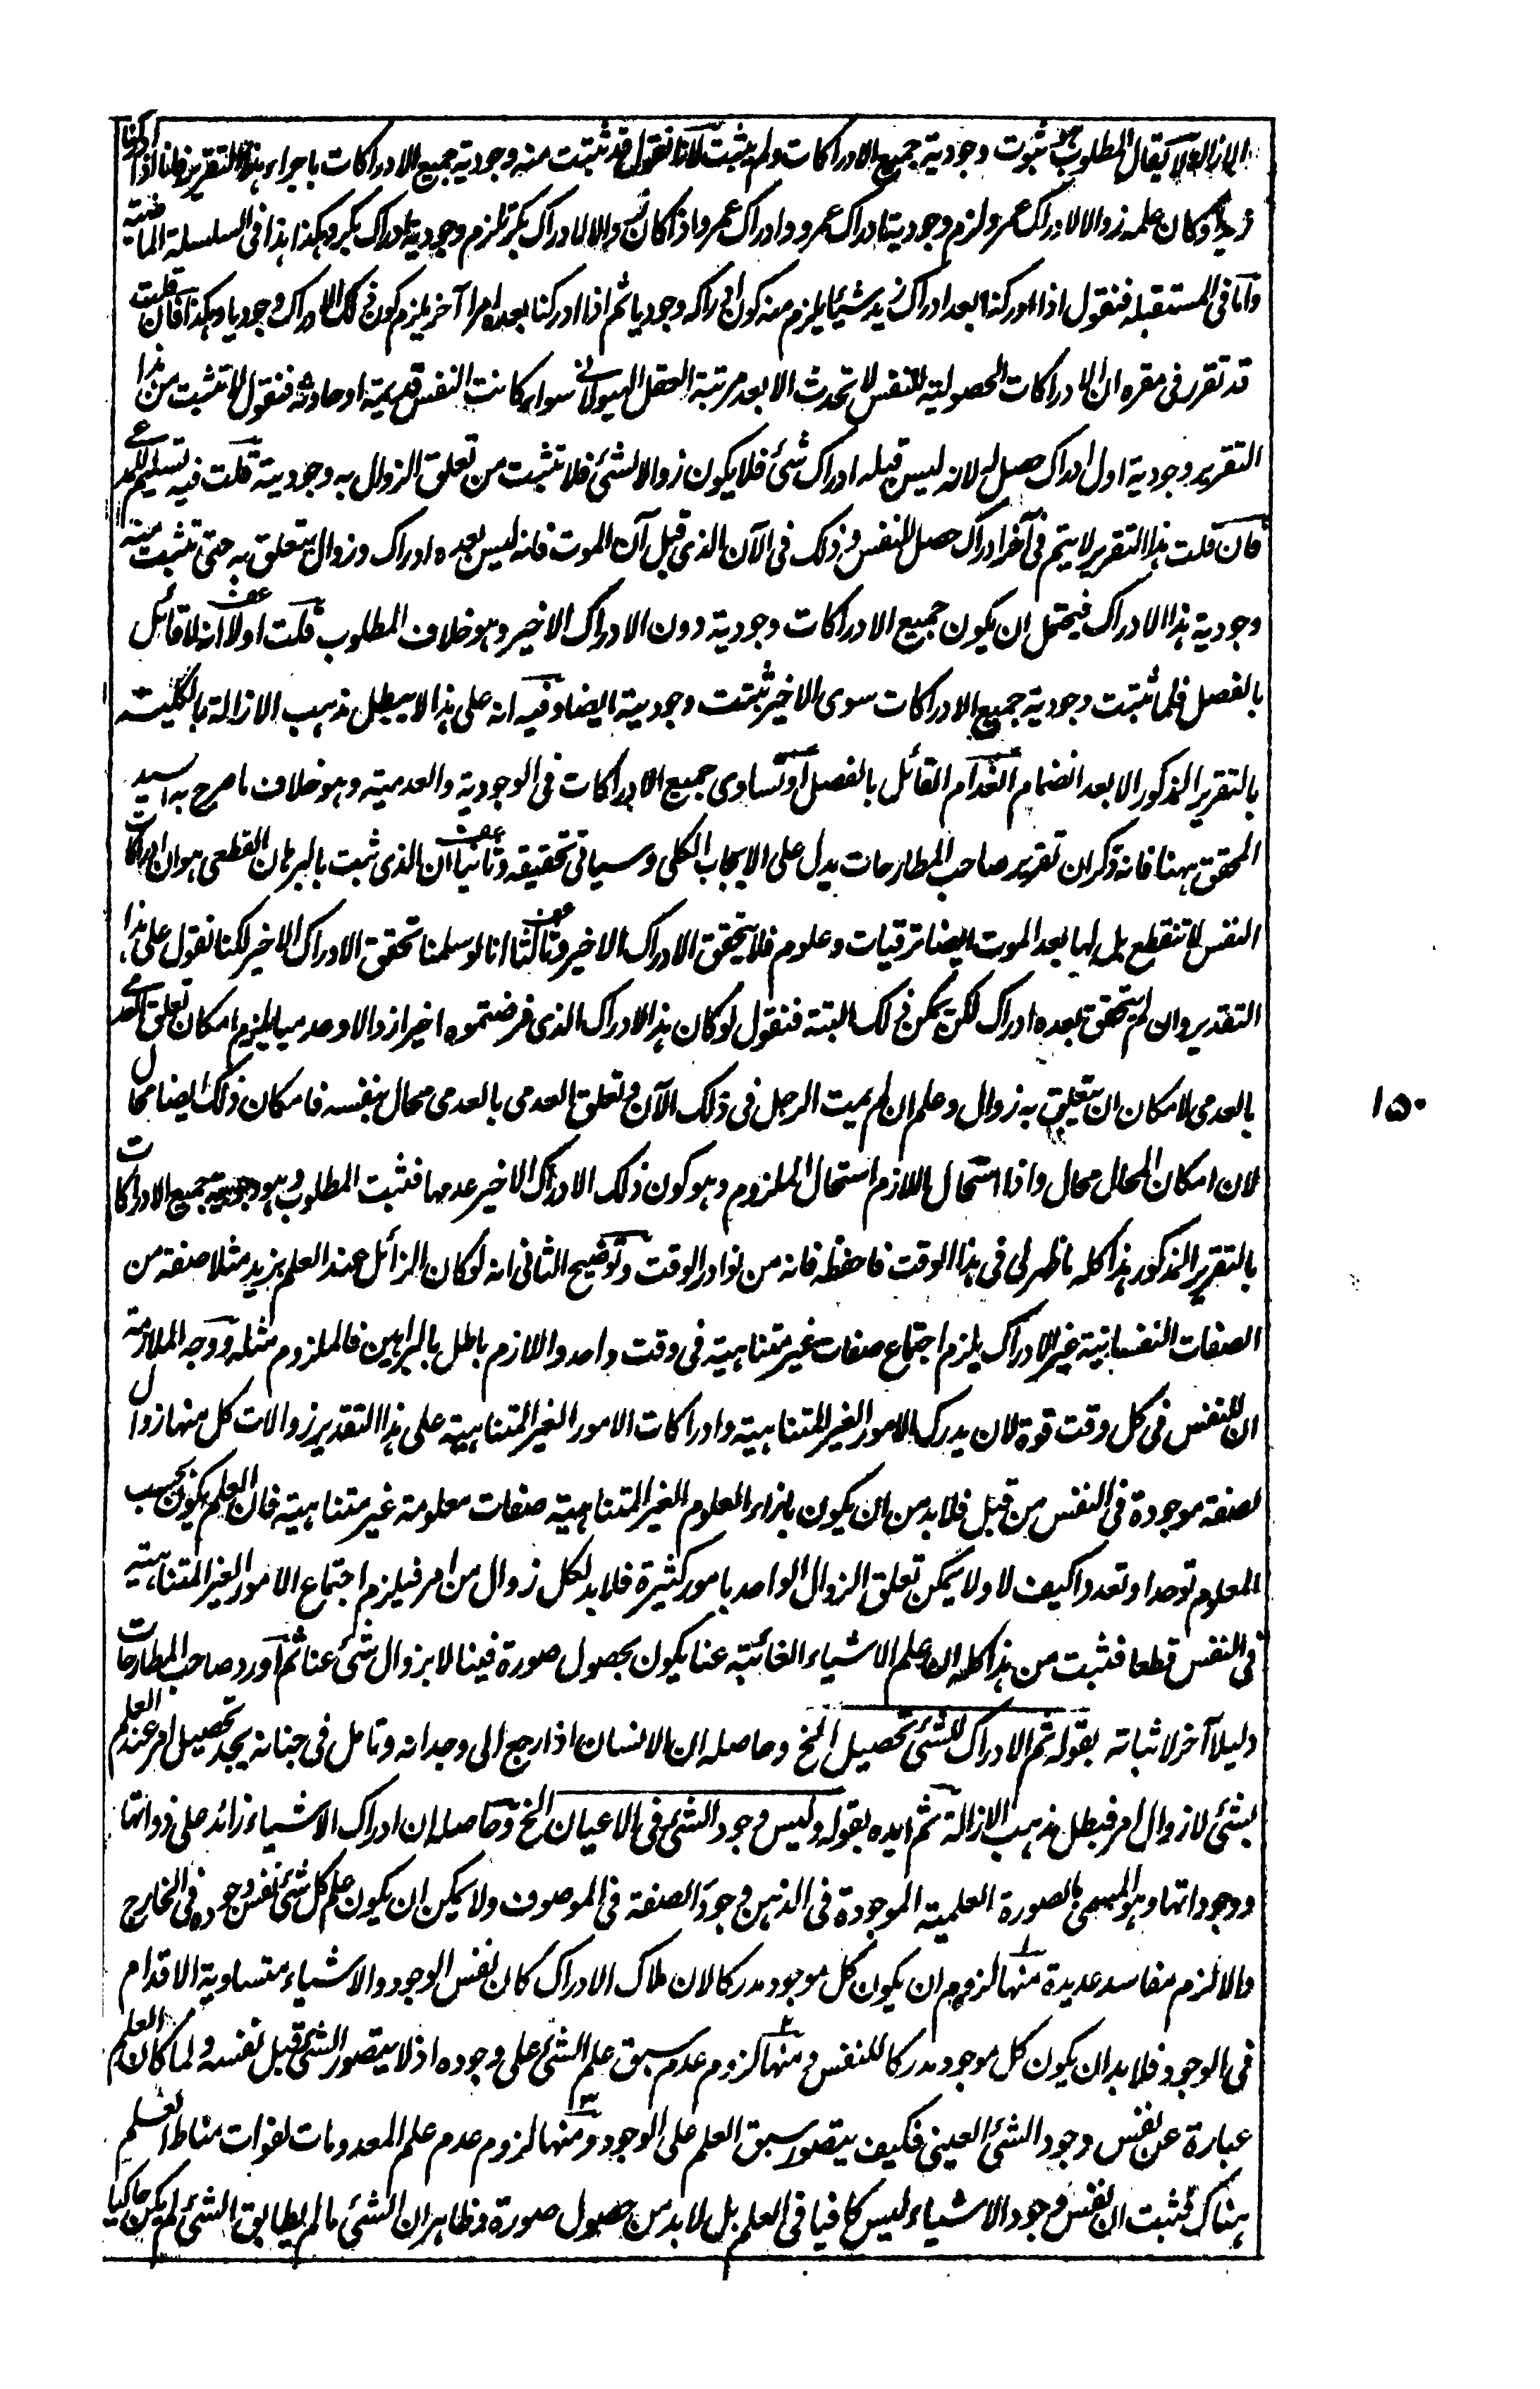 الازالة لا يقال المطلوب هو ثبوت وجودية جميع الادراكات ولم يثبت لانا نقول قد ثبتت منه وجودية جميع الادراكات باجراء هذا التقرير فانا اذا ادركنا
زيدا وكان علمه زوالا لادراك عمرو لزم وجودية ادراك عمرو وادراك عمرو اذا كان زوالا لادراك بكر تلزم وجودية ادراك بكر وهكذا هذا فى السلسلة الماضية
واما فى المستقبلة فنقول اذا ادركنا بعد ادراك زيد شيئا يلزم منه كون ادراكه وجوديا ثم اذا ادركنا بعده امرا آخر يلزم كون ذلك الادراك وجوديا وهكذا فان قلت
قد تقرر فى مقره ان الادراكات الحصولية للنفس لا تحدث الا بعد مرتبة العقل الهيولانى سواء كانت النفس قديمة او حادثة فنقول لا تثبت من هذا
التقرير وجودية اول ادراك حصل له لانه ليس قبله ادراك شئ فلا يكون زوالا لشئ فلا تثبت من تعلق الزوال به وجوديته قلت فيه تسليم للمدعى
فان قلت هذا التقرير لا يتم فى آخر ادراك حصل للنفس وذلك فى الآن الذى قبل آن الموت فانه ليس بعده ادراك وزوال يتعلق به حتى تثبت منه
وجودية هذا الادراك فيحتمل ان يكون جميع الادراكات وجودية دون الادراك الاخير وهو خلاف المطلوب قلت اولا انه لا قائل
بالفصل فلما ثبتت وجودية جميع الادراكات سوى الاخير ثبتت وجوديته ايضا وفيه انه على هذا لا يبطل مذهب الازالة بالكلية
بالتقرير المذكور الا بعد انضمام انعدام القائل بالفصل او تساوى جميع الادراكات فى الوجودية والعدمية وهو خلاف ما صرح به السيد
المحقق ههنا فانه ذكر ان تقرير صاحب المطارحات يدل على الايجاب الكلى وسياتى تحقيقه وثانيا ان الذى ثبت بالبرهان القطعى هو ان ادراكات
النفس لا تنقطع بل لها بعد الموت ايضا ترقيات وعلوم فلا يتحقق الادراك الاخير وثالثا انا لو سلمنا تحقق الادراك الاخير لكنا نقول على هذا
التقدير وان لم يتحقق بعده ادراك لكن يمكن ذلك البتة فنقول لو كان هذا الادراك الذى فرضتموه اخيرا زوالا وعدميا يلزم امكان تعلق العدمى
بالعدمى لامكان ان يتعلق به زوال وعلم ان لم يمت الرجل فى ذلك الآن وتعلق العدمى بالعدمى محال بنفسه فامكان ذلك ايضا محال
لان امكان المحال محال واذا استحال اللازم استحال الملزوم وهو كون ذلك الادراك الاخير عدميا فثبت المطلوب وهو وجودية جميع الادراكات
بالتقرير المذكور هذا كله ما ظهر لى فى هذا الوقت فاحفظه فانه من نوادر الوقت وتوضيح الثانى انه لو كان الزائل عند العلم بزيد مثلا صفة من
الصفات النفسانية غير الادراك يلزم اجتماع صفات غير متناهية فى وقت واحد واللازم باطل بالبراهين فالملزوم مثله ووجه الملازمة
ان للنفس فى كل وقت قوة لان يدرك الامور الغير المتناهية وادراكات الامور الغير المتناهية على هذا التقدير زوالات كل منها زوال
لصفة موجودة فى النفس من قبل فلا بد من ان يكون بازاء المعلوم الغير المتناهية صفات معلومة غير متناهية فان العلم يكون بحسب
المعلوم توحدا وتعددا كيف لا ولا يمكن تعلق الزوال الواحد بامور كثيرة فلا بد لكل زوال من امر فيلزم اجتماع الامور الغير المتناهية
فى النفس قطعا فثبت من هذا كله ان علم الاشياء الغائبة عنا يكون بحصول صورة فينا لا بزوال شئ عنا ثم اورد صاحب المطارحات
دليلا آخر لاثباته بقوله ثم الادراك للشئ تحصيل الخ وحاصله ان الانسان اذا رجع الى وجدانه وتامل فى جنانه يجد تحصيل امر عند العلم
بشئ لا زوال امر فبطل مذهب الازالة ثم ايده بقوله وليس وجود الشئ فى الاعيان الخ وحاصله ان ادراك الاشياء زائد على ذواتها
ووجوداتها وهو المسمى بالصورة العلمية الموجودة فى الذهن وجود الصفة فى الموصوف ولا يمكن ان يكون علم كل شئ نفس وجوده فى الخارج
والا لزم مفاسد عديدة منها لزوم ان يكون كل موجود مدركا لان ملاك الادراك كان نفس الوجود والاشياء متساوية الاقدام
فى الوجود فلا بد ان يكون كل موجود مدركا للنفس ومنها لزوم عدم سبق علم الشئ على وجوده اذ لا يتصور الشئ قبل نفسه ولما كان العلم
عبارة عن نفس وجود الشئ العينى فكيف يتصور سبق العلم على الوجود ومنها لزوم عدم علم المعدومات لفوات مناط العلم
هناك فثبت ان نفس وجود الاشياء ليس كافيا فى العلم بل لا بد من حصول صورة وظاهر ان الشئ ما لم يطابق الشئ لم يكن حاكيا
١٥٠